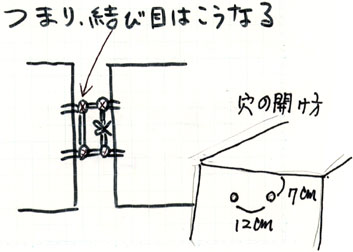 つまり、結び目はこうなる
穴の開け方
7cm
12cm